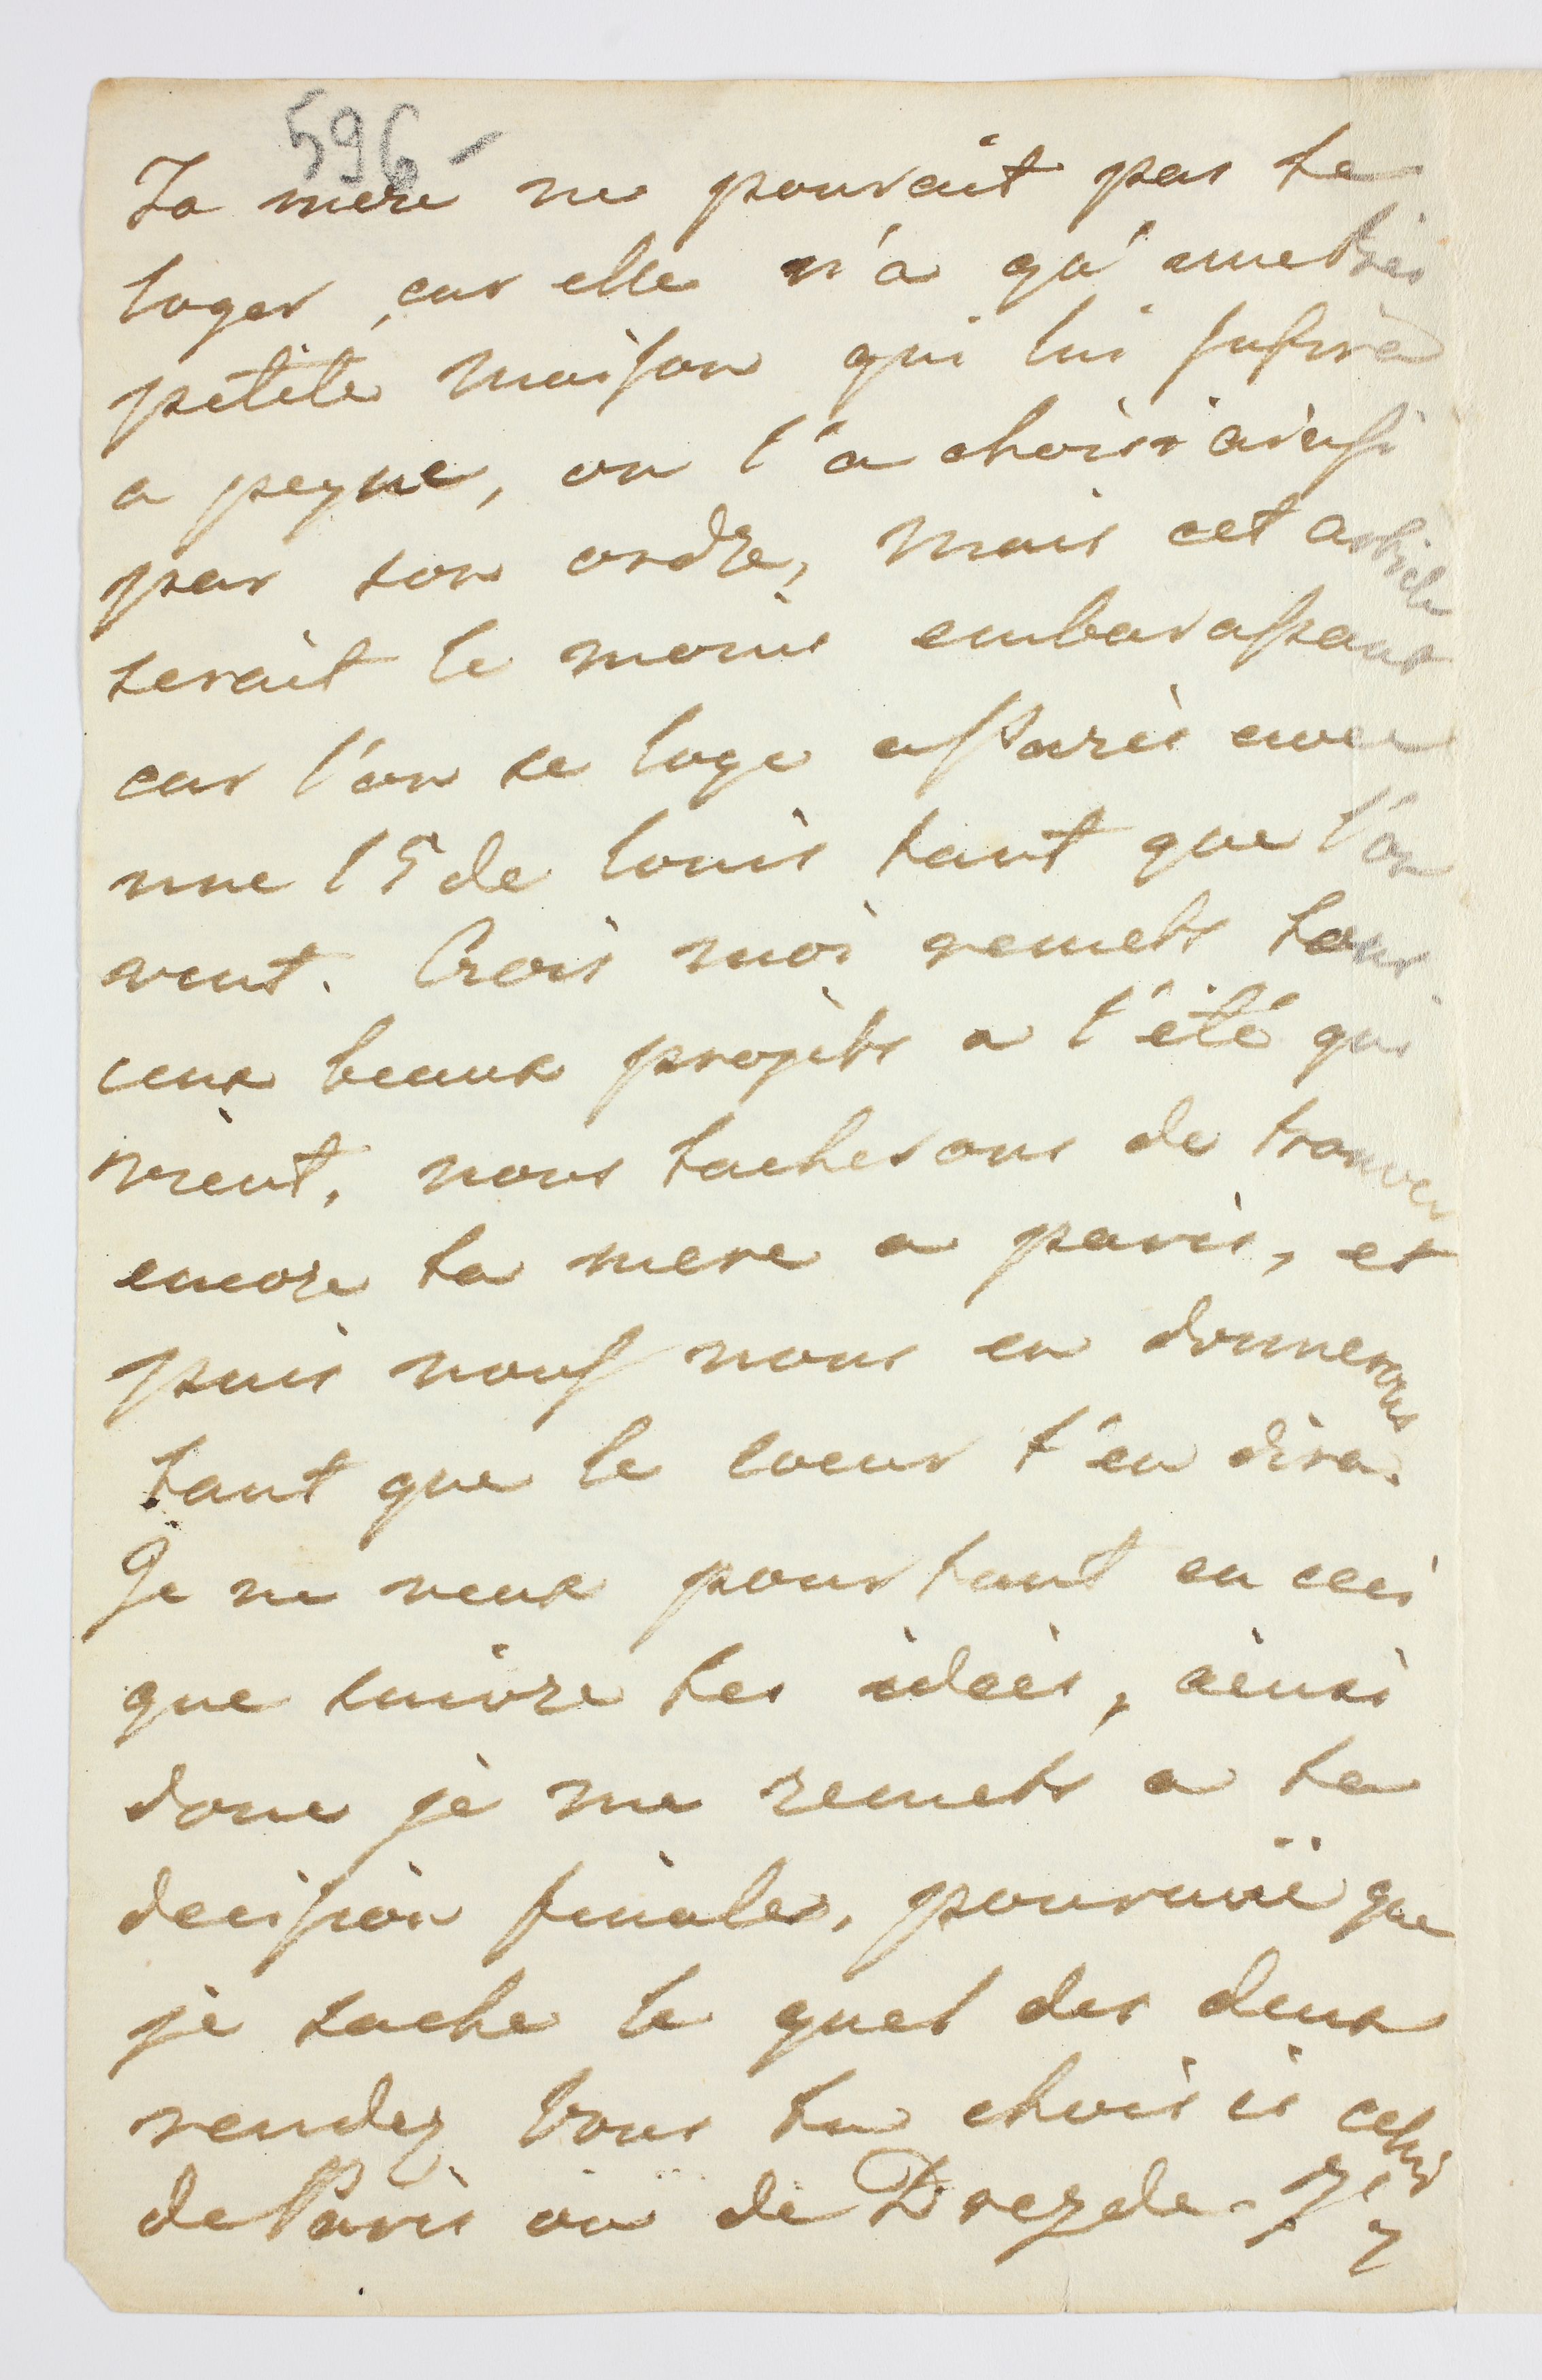 596 –
Ta mere ne pouvait pas te
loger, car elle n'a qu'une très
petite maison qui lui sufira
a peyne, on l'a choisi ainsi
par son ordre, mais cet article
serait le moins embarassant
car l'on se loge a Paris avec
une 15de louis tant que l'on
veut. Crois moi remets tous
ceux beaux projets a l'été qui
vient, nous tacherons de trouver
encore ta mere a paris, et
puis nous nous en donnerons
tant que le coeur t'en dira.
Je ne veux pourtant en ceci
que suivre tes idées, ainsi
donc je me remets a ta
decision finale, pourvuë que
je sache le quel des deux
rendez vous tu choisis celui
de Paris ou de Drezde.